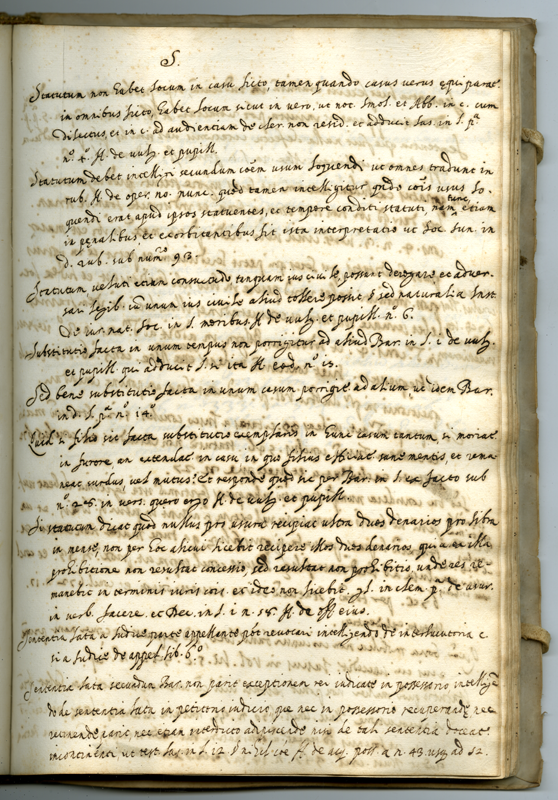 S.
Statutum non habet locum in casu ficto, tamen quando casus verus equiparatur
in omnibus ficto, habet locum sicut in vero, ut not. Imol. et Abb. in c. cum
dilectus, et in c. ad audientiam de cler. non resid. et adducit Ias. in l. pᵃ
nº 4. ff de vulg. et pupill.
Statutum debet intelligi secundum coem usum loquendi ut omnes tradunt in
rub. ff de oper. no. nunc. quod tamen intelligitur quando cois usus lo-
quendi erat apud ipsos statuentes, et tempore conditi statuti, nam tunc etiam
in penalibus et exorbitantibus fit ista interpretatio ut Soc. Iun. in
d. rub. sub num.º 93.
Statutum veluti etiam consuetudo tanquam ius civile possunt derogare et adver-
sari legib. cum unum ius civile aliud tollere possit, sed naturalia Inst.
de iur. nat. Soc. in l. moribus ff de vulg. et pupill. nº 6.
Substitutio facta in unum tempus non porrigitur ad aliud Bar. in l. 1. de vulg.
et pupill. qui adducit l. si ita ff eod. nº 13.
Sed bene substitutio facta in unum casum porrigitur ad alium, ut idem Bar.
in d. l. pᵃ nº 14.
Quid si filio sit facta substitutio exemplaris in eum casum tantum, si moriatur
in furore an extendatur in casu in quo filius efficiatur sane mentis et rema-
neat surdus, vel mutus? Et responde quod sic per Bar. in l. ex facto sub
nº 25. in vers. quero ergo ff de vulg. et pupill.
Si statutum dicat quod nullus pro usuris recipiat ultra duos denarios pro libra
in mense, non per hoc alicui licebit recipere illos duos denarios, quia ex illa
prohibitione non resultat concessio, sed resultat non prohibitio, unde res re-
manebit in terminis iuris cois. et ideo non licebit. gl. in clem. pᵃ de usur.
in verb. facere. et Dec. in l. 1. n. 15. ff de off. eius.
Sententia lata a Iudice parte appellante pot revocari intelligendo de interlocutoria c.
si a Iudice de appel. lib. 6º
Sententia lata secundum Bar. non parit exceptionem rei iudicate in possessorio intelligen
do de sententia lata in petitorio iudicio que nec in possessorio recuperande nec
retinende parit nec etiam interdicto adipiscende nisi de tali sententia doceatur
incontinenti ut test. Ias. in l. 12. § nihil coe ff de acq. poss. a n. 43. usq. ad 52.